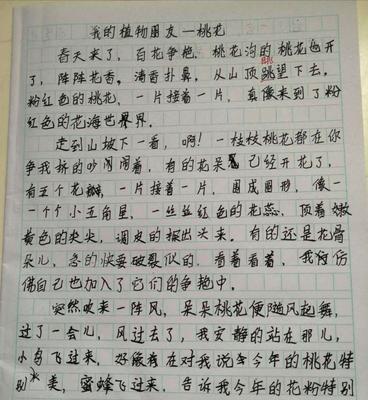 我的植物朋友—桃花
春天来了，百花争艳，桃花沟的桃花也开
了，阵阵花香，清香扑鼻，从山顶眺望下去，
粉红色的桃花，一片接着一片，真像来到了粉
红色的花海世界。
走到山坡下一看，啊！一枝枝桃花都在你
争我挤的吵闹着，有的花朵已经开花了，
有五个花瓣，一片接着一片，围成圆形，像一
个个小五角星，一丝丝红色的花蕊，顶着嫩
黄色的尖尖，调皮的探出头来。有的还是花骨
朵儿，各的快要破裂似的，看着看着，我仿
佛自己也加入了它们的争艳中。
突然吹来一阵风，朵朵桃花便随风起舞，
过了一会儿，风过去了，我安静的站在那儿，
小鸟飞过来，好像在对我说今年的桃花特
别美，蜜蜂飞过来，告诉我今年的花粉特别